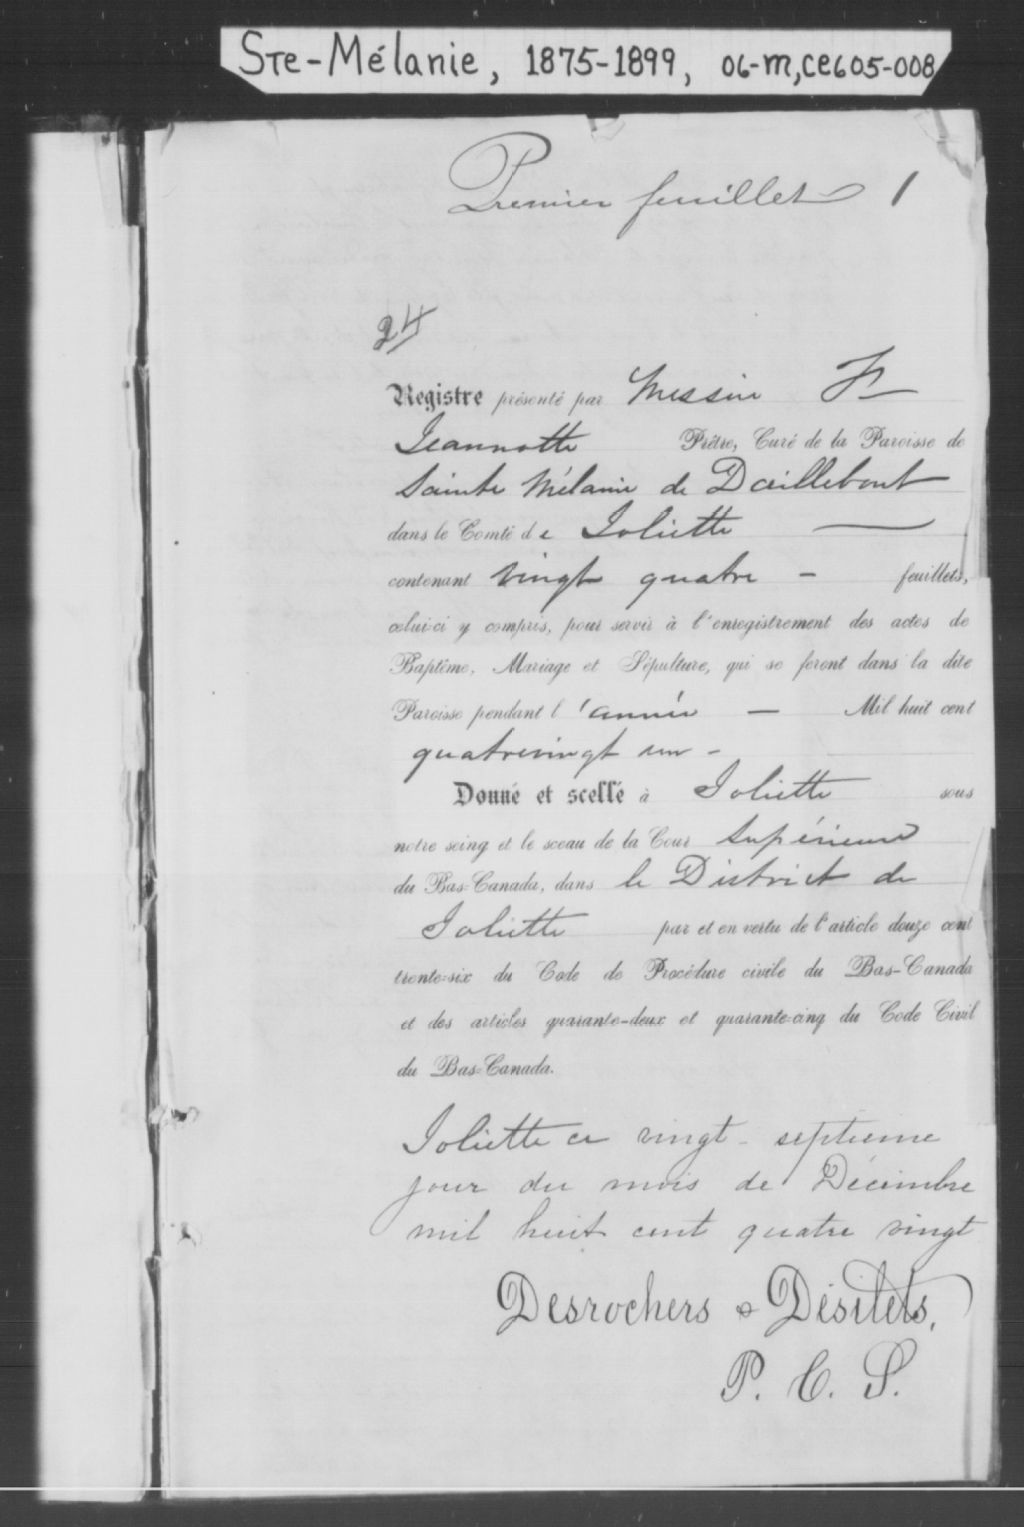 Ste-Mélanie, 1875-1899, 06-M,CE605-008
Premier feuillet 1
24
Registre présenté par Messire F
Jeannotte Prêtre, Curé de la Paroisse de
Sainte Mélanie de Daillebout
dans le Comté de Joliette
contenant vingt quatre - feuillets,
celui-ci y compris, pour servir à l'enregistrement des actes de
Baptême, Mariage et Sépulture, qui se feront dans la dite
Paroisse pendant l'année — Mil huit cent
quatrevingt un -
Donné et scellé à Joliette sous
notre seing et le sceau de la Cour Supérieure
du Bas-Canada, dans le District de
Joliette par et en vertu de l'article douze cent
trente-six du Code de Procédure civile du Bas-Canada
et des articles quarante-deux et quarante-cinq du Code Civil
du Bas-Canada.
Joliette ce vingt-septieme
jour du mois de Décembre
mil huit cent quatre vingt
Desrochers & Désilets,
P. C. S.